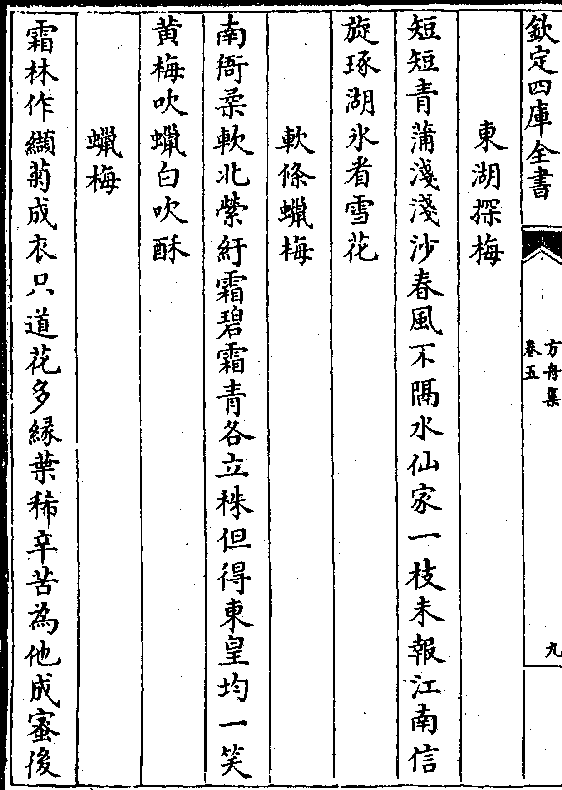 欽定四庫全書
方舟集
卷五
九
東湖探梅
短短青蒲淺淺沙春風不隔水仙家一枝未報江南信
旋琢湖氷看雪花
軟條蠟梅
南衙柔軟北縈紆霜碧霜青各立株但得東皇均一笑
黄梅吹蠟白吹酥
蠟梅
霜林作纈菊成衣只道花多緣葉稀辛苦為他成蜜後